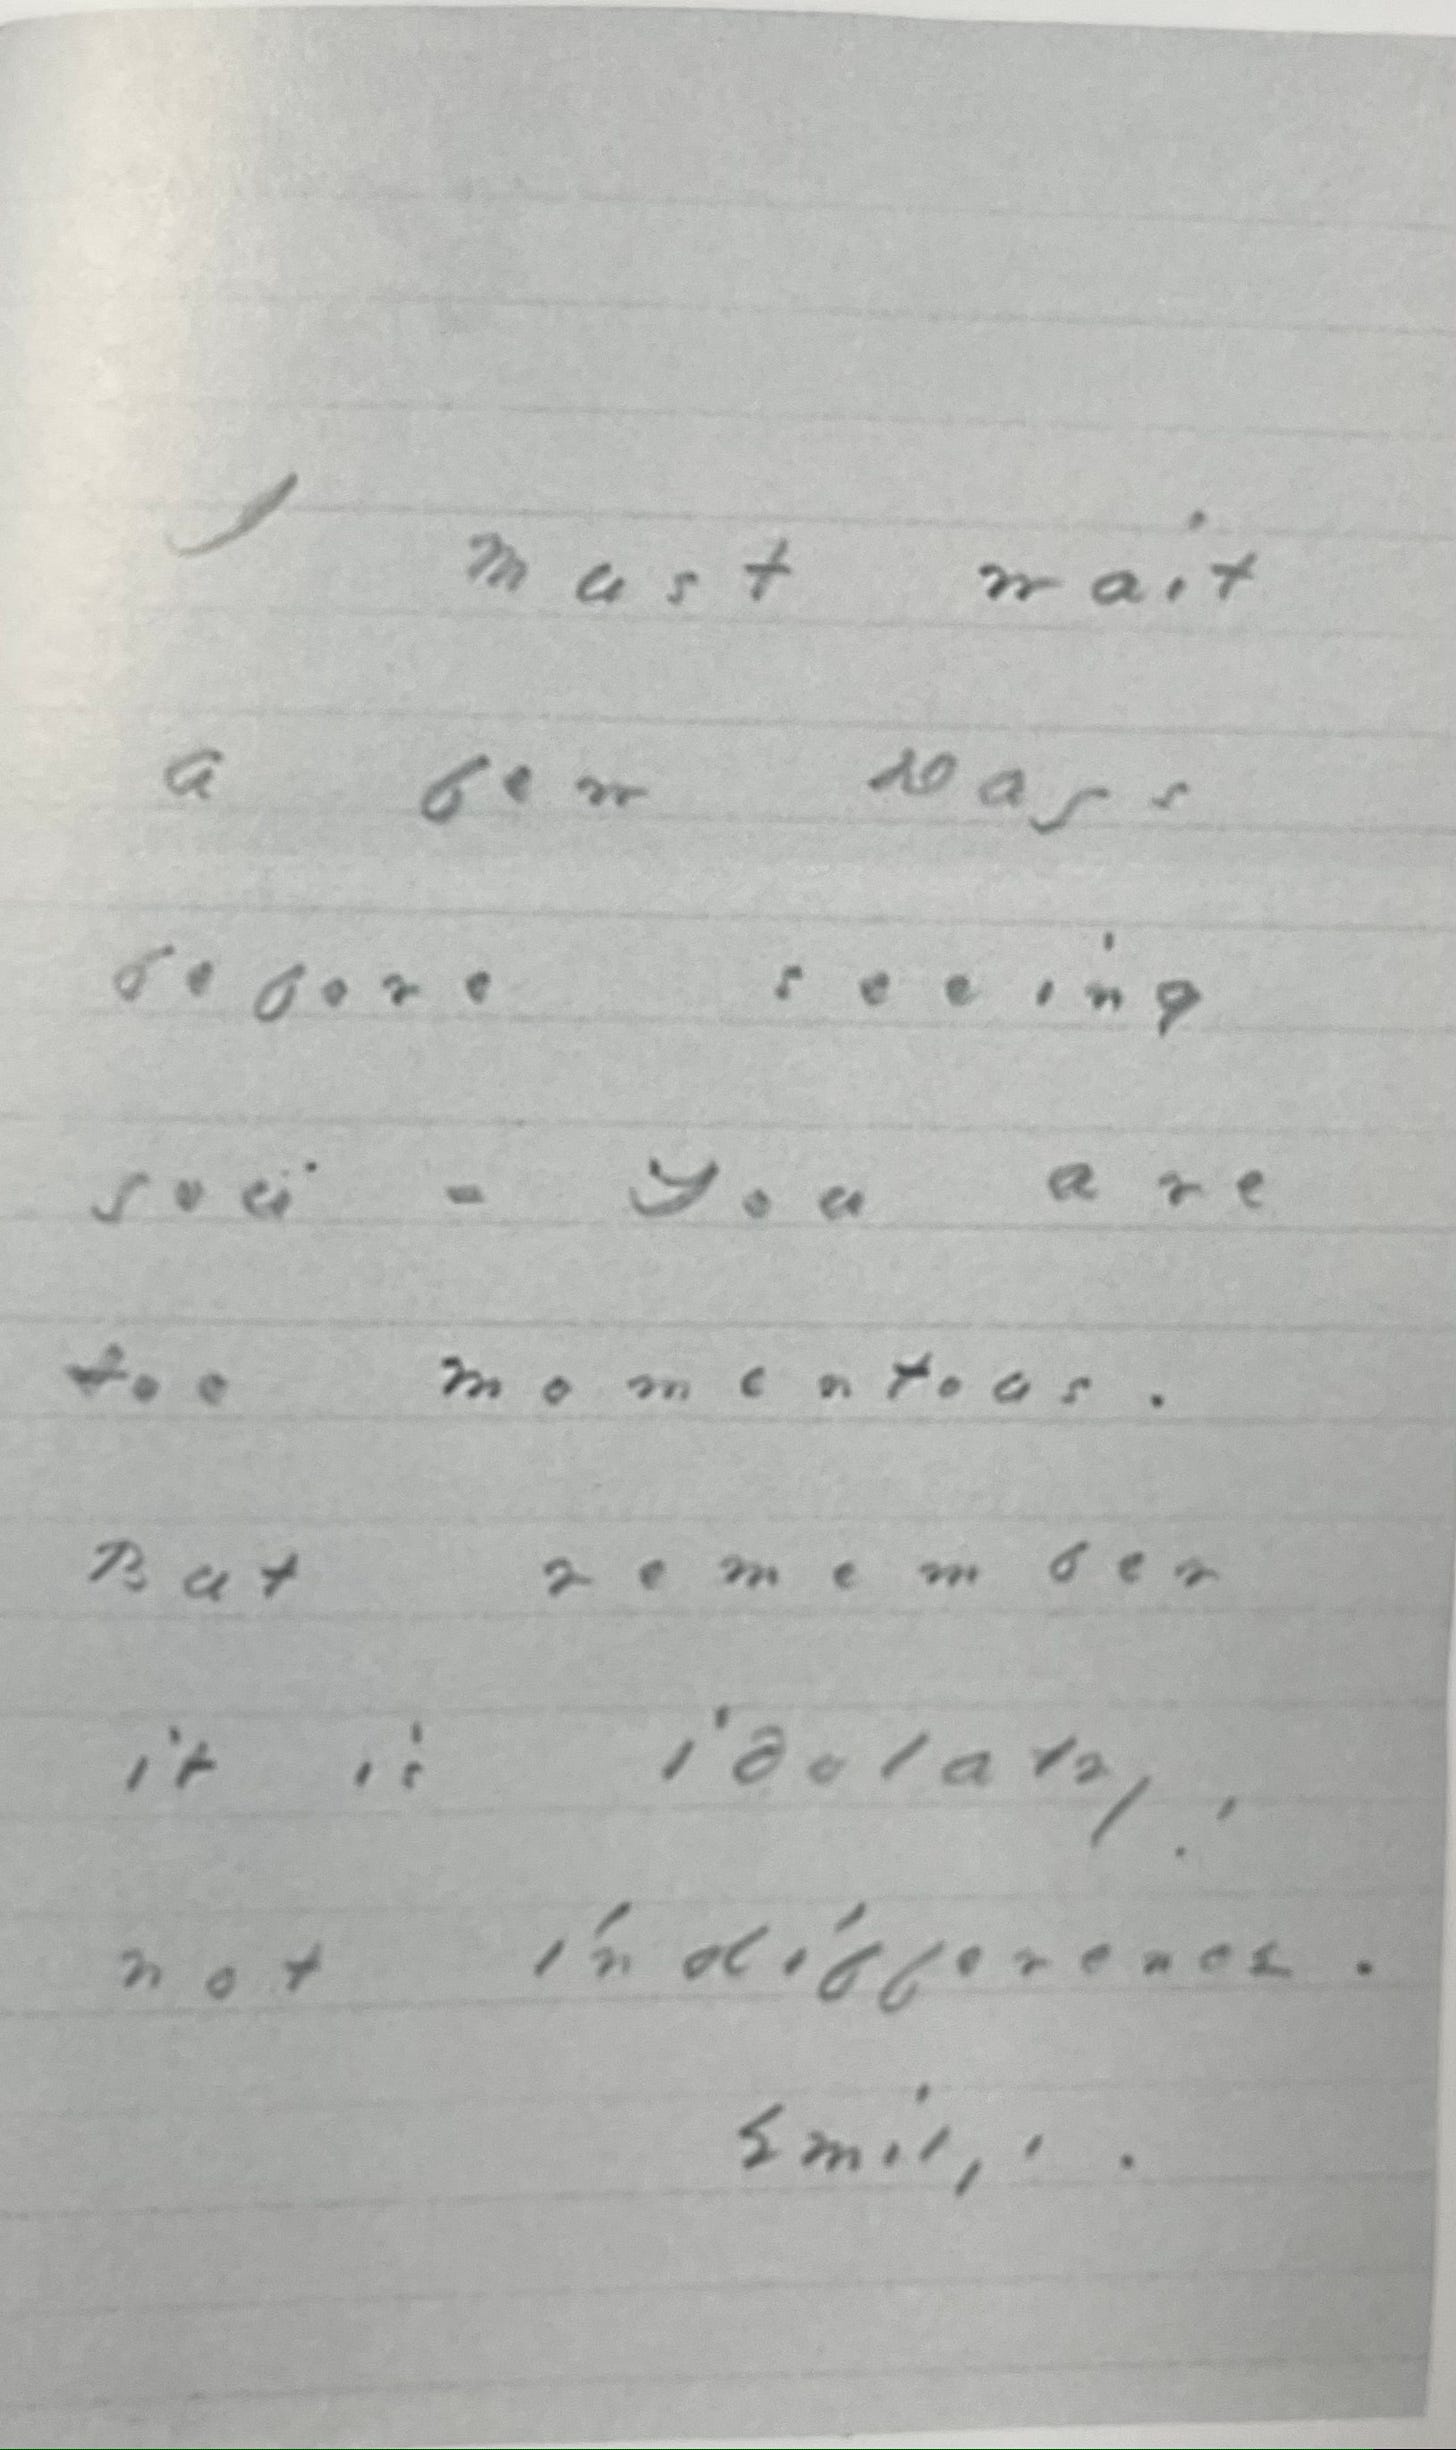 I must wait
a few Days
before seeing
you - You are
too momentous.
But remember
it is idolatry,
not indifference.
Emily.